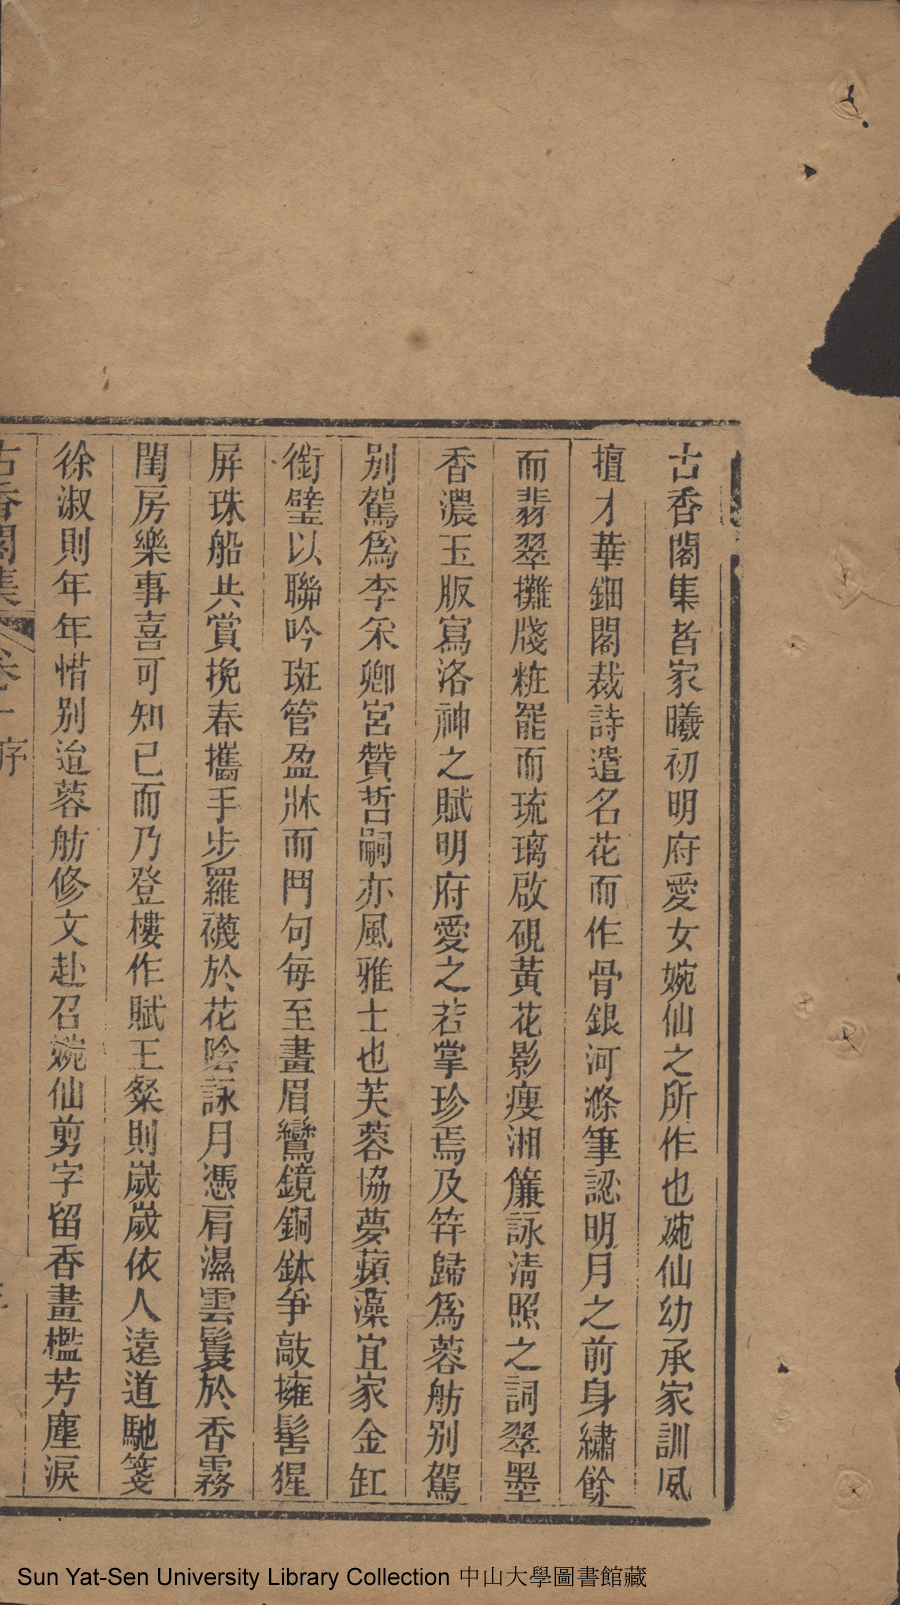 古香閣集者家曦初明府愛女婉仙之所作也婉仙幼承家訓夙
擅才華鈿閣裁詩遣名花而作骨銀河滌筆認明月之前身繡餘
而翡翠攤牋粧罷而琉璃啟硯黃花影瘦湘簾詠清照之詞翠墨
香濃玉版寫洛神之賦明府愛之若掌珍焉及笄歸為蓉舫別駕
別駕為李宋卿宮贊哲嗣亦風雅士也芙蓉協夢蘋藻宜家金缸
銜璧以聯吟斑管盈牀而鬥句每至畫眉鸞鏡銅鉢爭敲擁髻猩
屏珠船共賞挽春攜手步羅襪於花陰詠月憑肩濕雲鬟於香霧
閨房樂事喜可知已而乃登樓作賦王粲則歲歲依人遠道馳箋
徐淑則年年惜別迨蓉舫修文赴召婉仙剪字留香畫檻芳塵淚
古香閣集 卷一 序
Sun Yat-Sen University Library Collection 中山大學圖書館藏